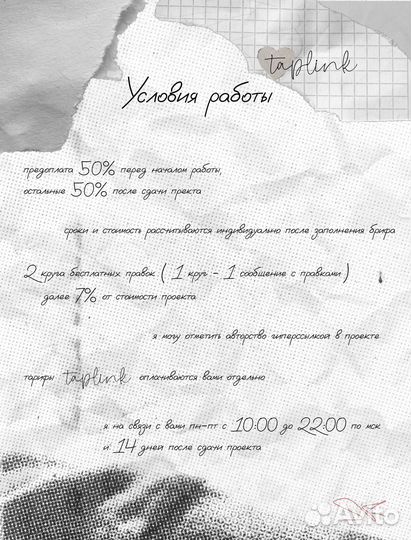 taplink
Условия работы
предоплата 50% перед началом работы,
остальные 50% после сдачи пректа
сроки и стоимость рассчитываются индивидуально после заполнения брифа
2 круга бесплатных правок ( 1 круг - 1 сообщение с правками )
далее 7% от стоимости проекта
я могу отметить авторство гиперссылкой в проекте
тарифы taplink оплачиваются вами отдельно
я на связи с вами пн-пт с 10:00 до 22:00 по мск
и 14 дней после сдачи проекта
Avito